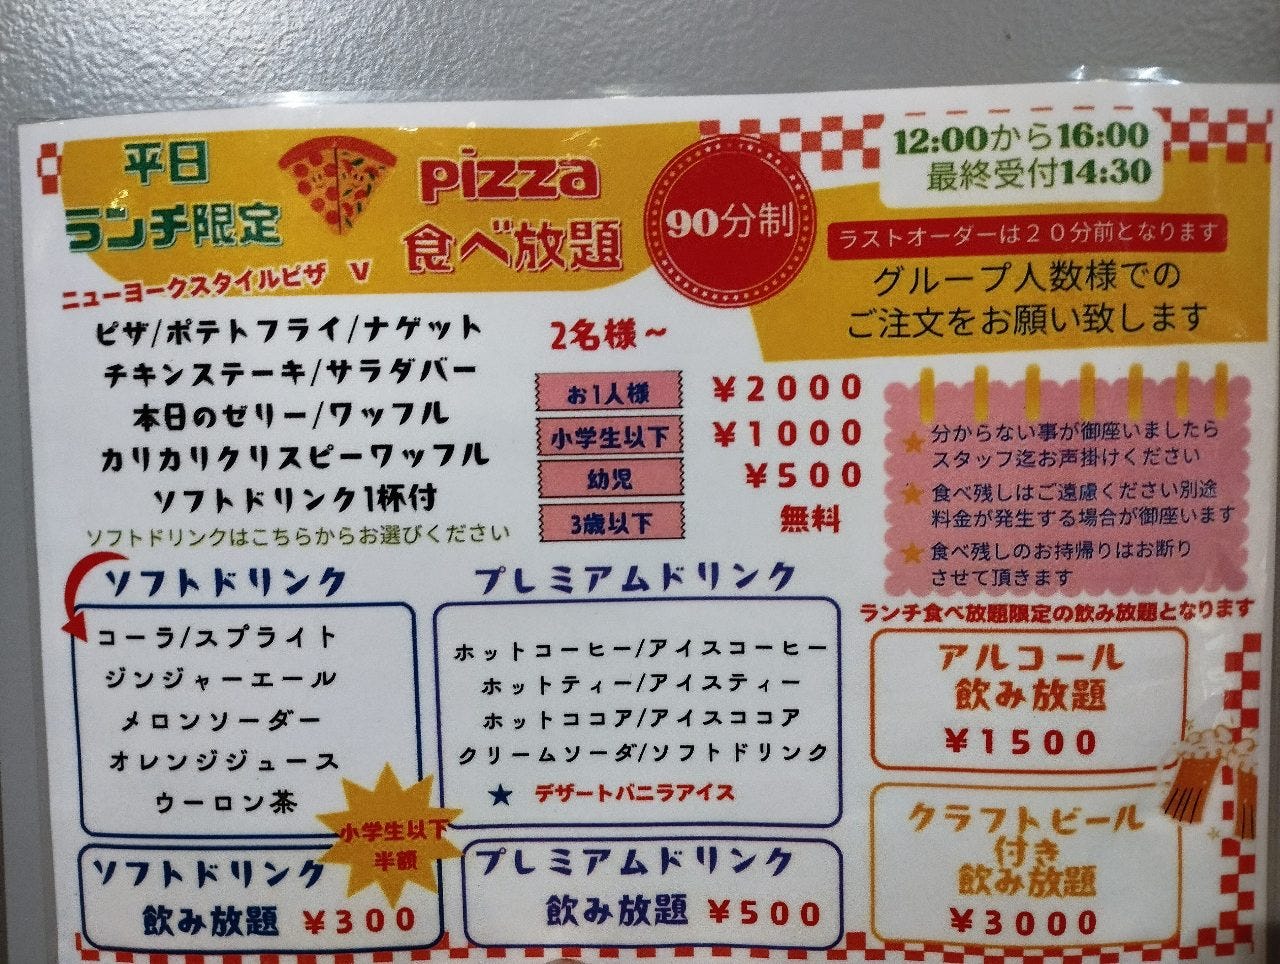 平日
ランチ限定
pizza
食べ放題
90分制
12:00から16:00
最終受付14:30
ラストオーダーは２０分前となります
グループ人数様での
ご注文をお願い致します
ニューヨークスタイルピザ V
ピザ/ポテトフライ/ナゲット
チキンステーキ/サラダバー
本日のゼリー/ワッフル
カリカリクリスピーワッフル
ソフトドリンク1杯付
ソフトドリンクはこちらからお選びください
2名様～
お1人様 ￥2000
小学生以下 ￥1000
幼児 ￥500
3歳以下 無料
★ 分からない事が御座いましたら
スタッフ迄お声掛けください
★ 食べ残しはご遠慮ください別途
料金が発生する場合が御座います
★ 食べ残しのお持帰りはお断り
させて頂きます
ソフトドリンク
コーラ/スプライト
ジンジャーエール
メロンソーダー
オレンジジュース
ウーロン茶
プレミアムドリンク
ホットコーヒー/アイスコーヒー
ホットティー/アイスティー
ホットココア/アイスココア
クリームソーダ/ソフトドリンク
★ デザートバニラアイス
小学生以下
半額
ソフトドリンク
飲み放題 ￥300
プレミアムドリンク
飲み放題 ￥500
ランチ食べ放題限定の飲み放題となります
アルコール
飲み放題
￥1500
クラフトビール
付き
飲み放題
￥3000